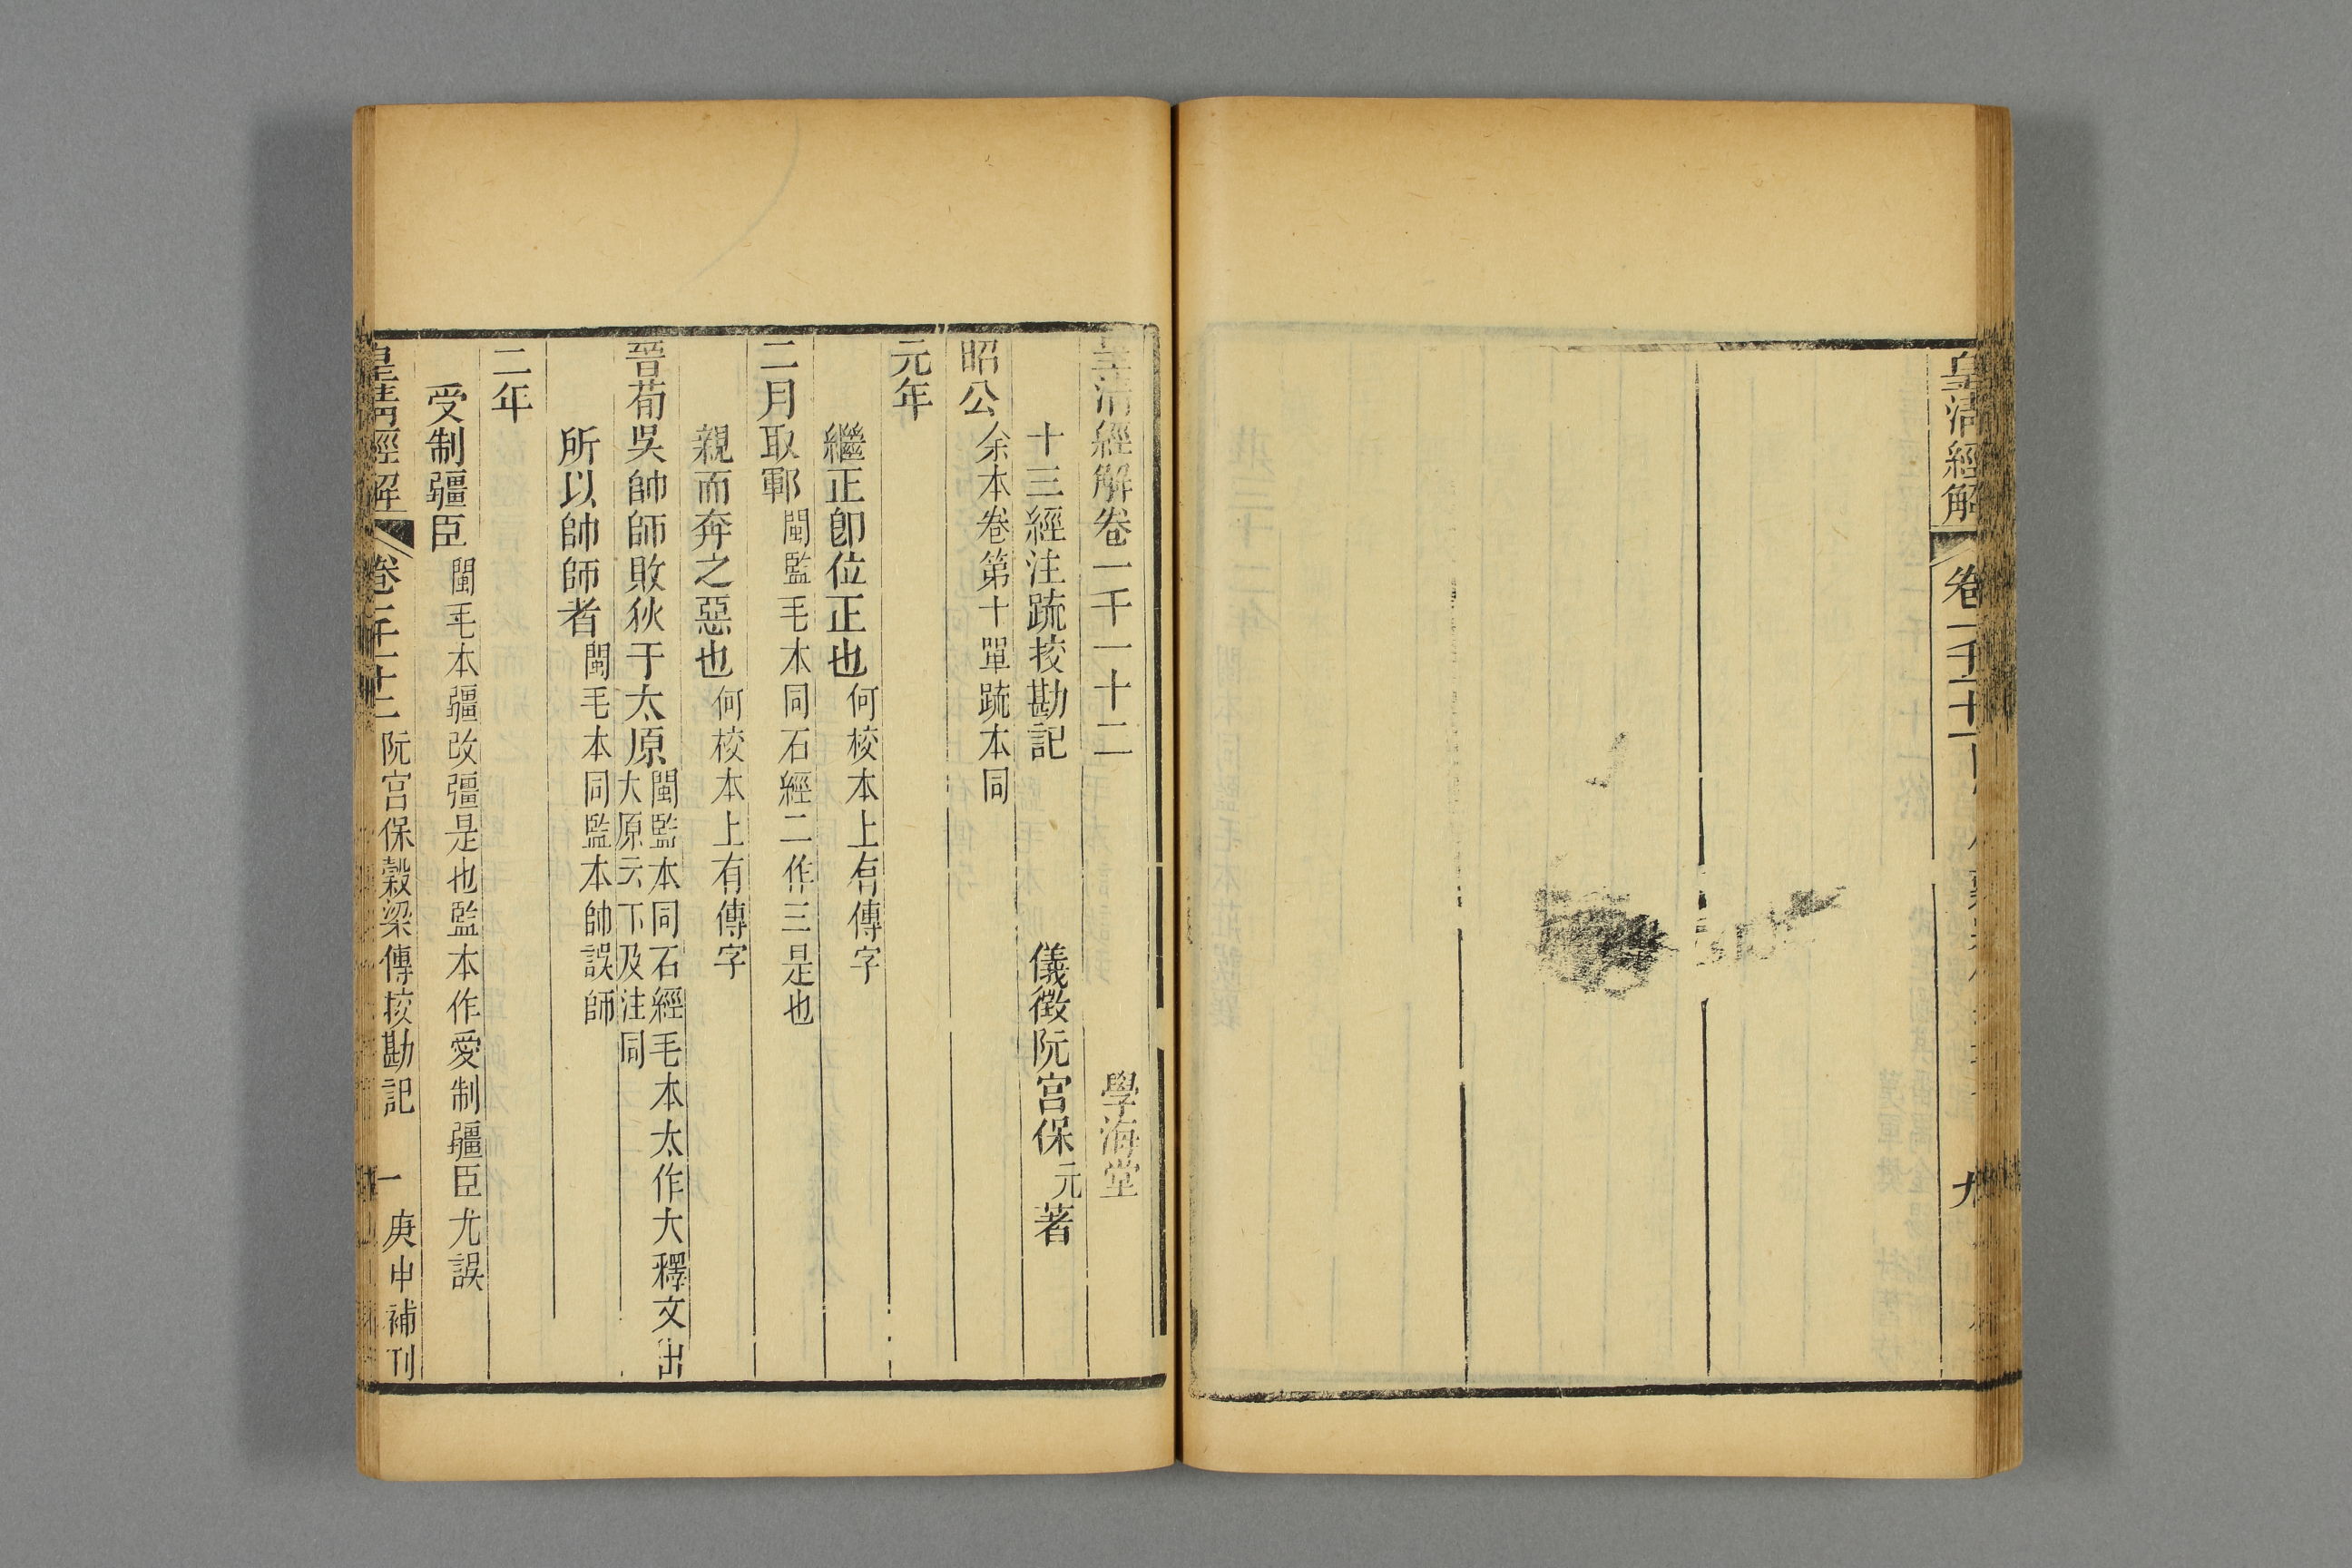 皇清經解
卷一千一十一
九
皇清經解卷一千一十二
學海堂
十三經注疏挍勘記
儀徵阮宮保元著
昭公余本卷第十單疏本同
元年
繼正即位正也何校本上有傳字
二月取鄆閩監毛本同石經二作三是也
親而奔之惡也何校本上有傳字
晉荀吳帥師敗狄于太原閩監本同石經毛本太作大釋文出
大原云下及注同
所以帥師者閩毛本同監本帥誤師
二年
受制疆臣閩毛本疆改彊是也監本作愛制疆臣尤誤
皇清經解
卷一千一十二
阮宮保穀梁傳挍勘記
一
庚申補刊